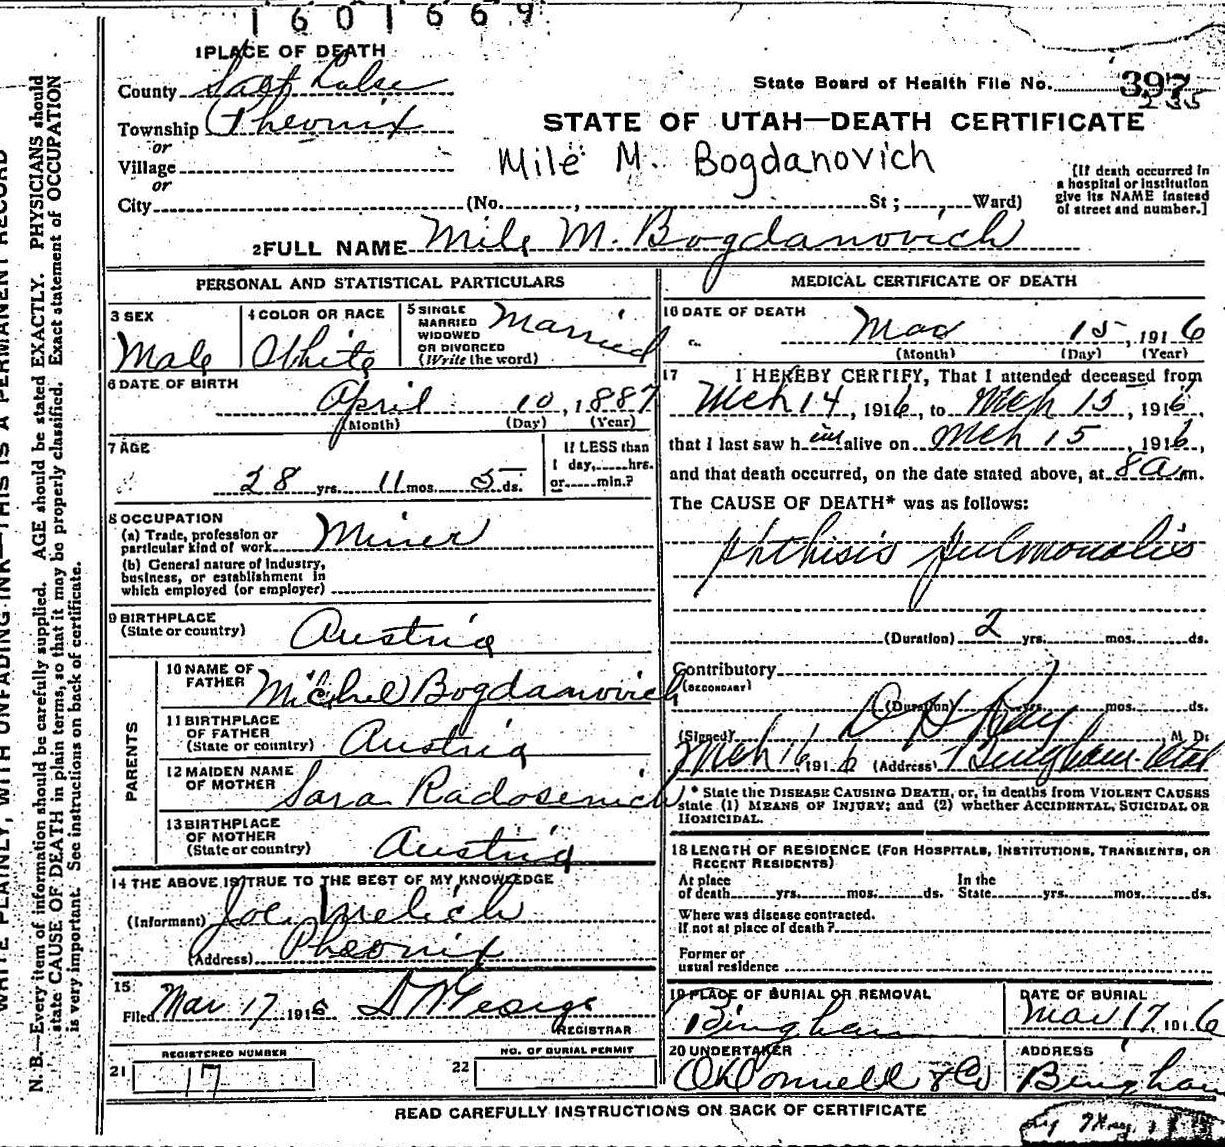 1601669
1 PLACE OF DEATH
County Salt Lake
State Board of Health File No. 397
235
Township Pheonix
STATE OF UTAH—DEATH CERTIFICATE
or
Village
Mile M. Bogdanovich
or
[If death occurred in
a hospital or institution
give its NAME instead
of street and number.]
City (No. , St ; Ward)
2 FULL NAME Mile M. Bogdanovich
PERSONAL AND STATISTICAL PARTICULARS
3 SEX
Male
4 COLOR OR RACE
White
5 SINGLE
MARRIED
WIDOWED
OR DIVORCED
(Write the word)
Married
6 DATE OF BIRTH
April 10, 1887
(Month) (Day) (Year)
7 AGE
28 yrs. 11 mos. 5 ds.
If LESS than
1 day, hrs.
or min.?
8 OCCUPATION
(a) Trade, profession or
particular kind of work Miner
(b) General nature of Industry,
business, or establishment in
which employed (or employer)
9 BIRTHPLACE
(State or country) Austria
PARENTS
10 NAME OF
FATHER Michel Bogdanovich
11 BIRTHPLACE
OF FATHER
(State or country) Austria
12 MAIDEN NAME
OF MOTHER Sara Radosenich
13 BIRTHPLACE
OF MOTHER
(State or country) Austria
14 THE ABOVE IS TRUE TO THE BEST OF MY KNOWLEDGE
(Informant) Joe Melich
(Address) Pheonix
15
Filed Mar 17 1916 D M George
REGISTRAR
21 REGISTERED NUMBER
17
22 NO. OF BURIAL PERMIT
MEDICAL CERTIFICATE OF DEATH
16 DATE OF DEATH
Mar 15, 1916
(Month) (Day) (Year)
17 I HEREBY CERTIFY, That I attended deceased from
Mch 14, 1916, to Mch 15, 1916,
that I last saw him alive on Mch 15, 1916,
and that death occurred, on the date stated above, at 8 a m.
The CAUSE OF DEATH* was as follows:
Phthisis Pulmonalis
(Duration) 2 yrs. mos. ds.
Contributory
(SECONDARY)
(Duration) yrs. mos. ds.
(Signed) D H Ray M. D.
Mch 16, 1916 (Address) Bingham Utah
* State the DISEASE CAUSING DEATH, or, in deaths from VIOLENT CAUSES
state (1) MEANS OF INJURY; and (2) whether ACCIDENTAL, SUICIDAL OR
HOMICIDAL.
18 LENGTH OF RESIDENCE (FOR HOSPITALS, INSTITUTIONS, TRANSIENTS, OR
RECENT RESIDENTS)
At place
of death yrs. mos. ds.
In the
State yrs. mos. ds.
Where was disease contracted.
If not at place of death?
Former or
usual residence
19 PLACE OF BURIAL OR REMOVAL
Bingham
DATE OF BURIAL
Mar 17, 1916
20 UNDERTAKER
O'Donnell & Co
ADDRESS
Bingham
READ CAREFULLY INSTRUCTIONS ON BACK OF CERTIFICATE
WRITE PLAINLY, WITH UNFADING INK—THIS IS A PERMANENT RECORD
N. B.—Every item of information should be carefully supplied. AGE should be stated EXACTLY. PHYSICIANS should
state CAUSE OF DEATH in plain terms, so that it may be properly classified. Exact statement of OCCUPATION
is very important. See instructions on back of certificate.